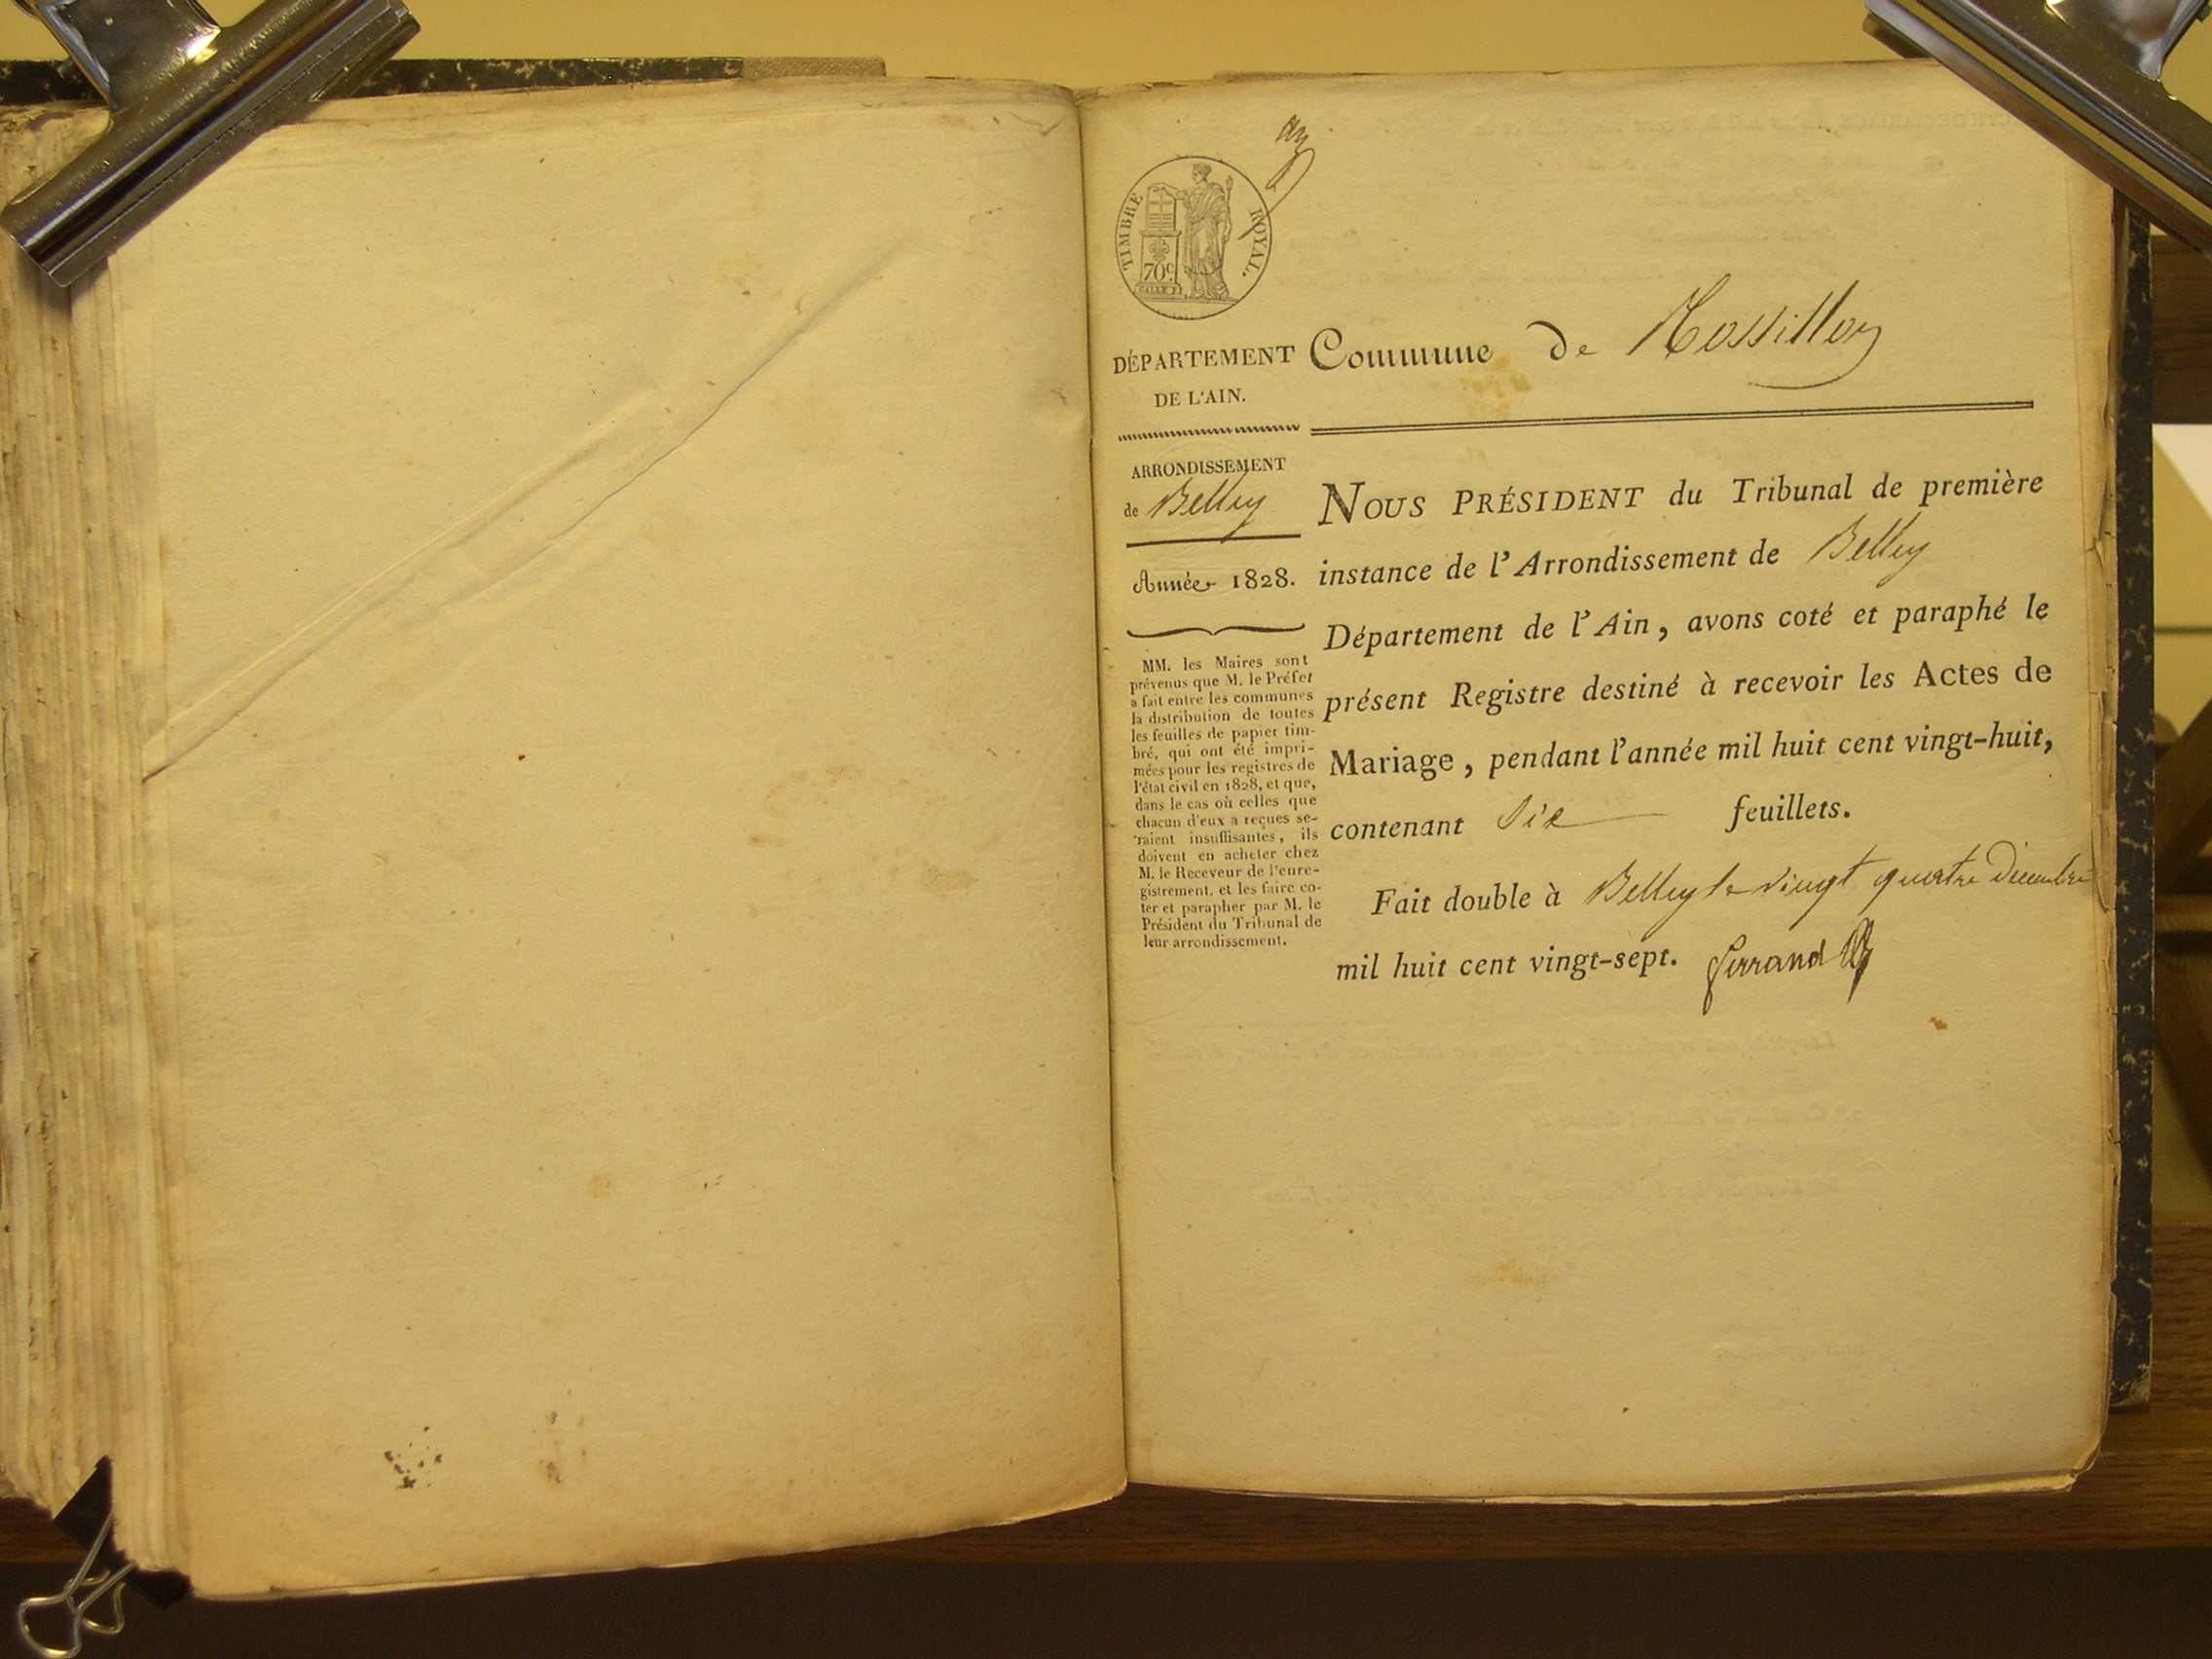 TIMBRE ROYAL.
70c.
DÉPARTEMENT
DE L'AIN.
Commune de Rossillon
ARRONDISSEMENT
de Belley
Année 1828.
MM. les Maires sont
prévenus que M. le Préfet
a fait entre les communes
la distribution de toutes
les feuilles de papier tim-
bré, qui ont été impri-
mées pour les registres de
l'état civil en 1828, et que,
dans le cas où celles que
chacun d'eux a reçues se-
raient insuffisantes, ils
doivent en acheter chez
M. le Receveur de l'enre-
gistrement, et les faire co-
ter et parapher par M. le
Président du Tribunal de
leur arrondissement.
NOUS PRÉSIDENT du Tribunal de première
instance de l'Arrondissement de Belley
Département de l'Ain, avons coté et paraphé le
présent Registre destiné à recevoir les Actes de
Mariage, pendant l'année mil huit cent vingt-huit,
contenant Six feuillets.
Fait double à Belley le vingt quatre Décembre
mil huit cent vingt-sept.